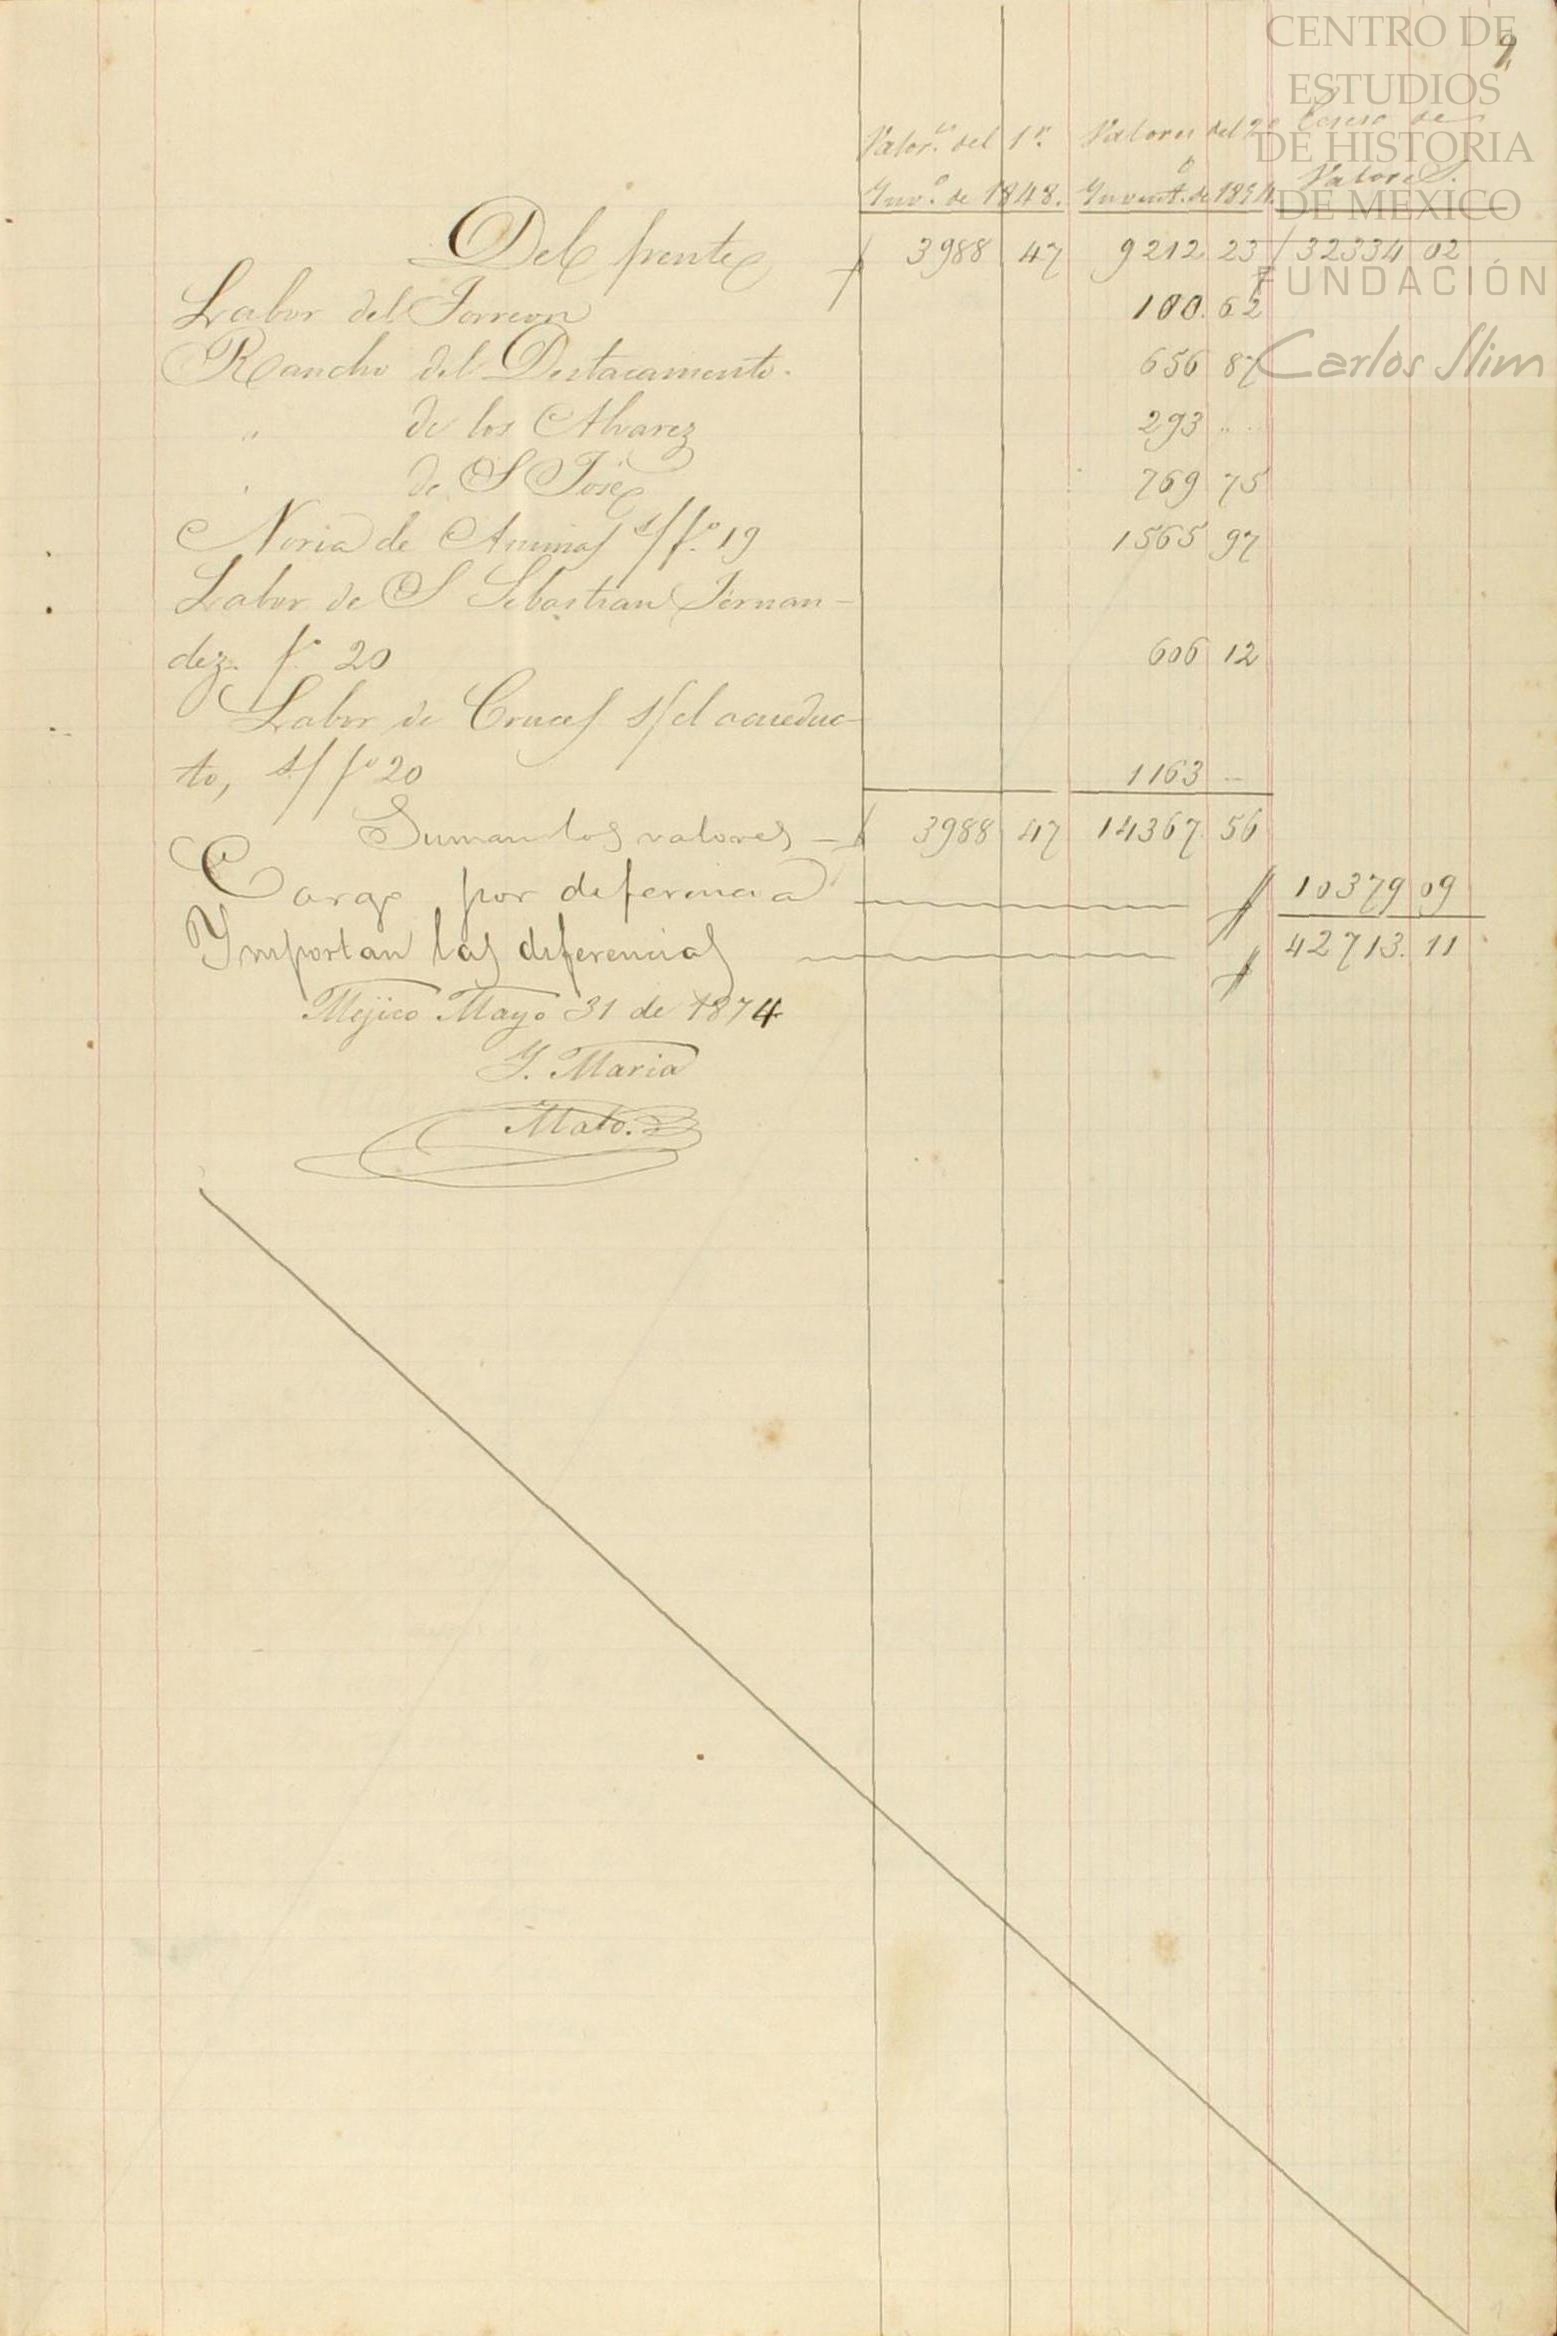 CENTRO DE
ESTUDIOS
DE HISTORIA
DE MEXICO
FUNDACIÓN
Carlos Slim
9
Valor.s del 1r. Valores del 2o de
Inv.o de 1848. Invent.o de 18 Valores.
Del frente $ 3988 47 9212 23 $ 32334 02
Labor del Torreon 100. 62
Rancho del Destacamento. 656 87
" de los Alvarez 293 ....
" de S José 769 75
Noria de Animas s/ f.o 19 1565 97
Labor de S Sebastian Fernan-
dez. f.o 20 606 12
Labor de Cruces s/ el acueduc-
to, s/ fo 20 1163 --
Suman los valores - $ 3988 47 14367. 56
Cargo por diferencia $ 10379 09
Ymportan las diferencias $ 42713. 11
Mejico Mayo 31 de 1874
Y. Maria
Mato.